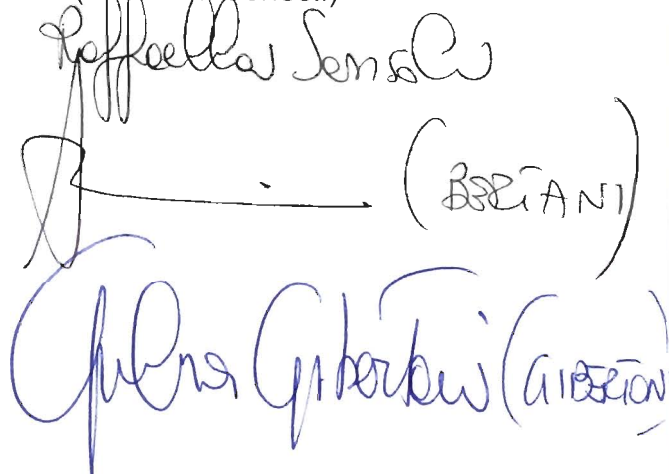 Raffaella Sensoli
(BERTANI)
Giulia Gibertoni (GIBERTON